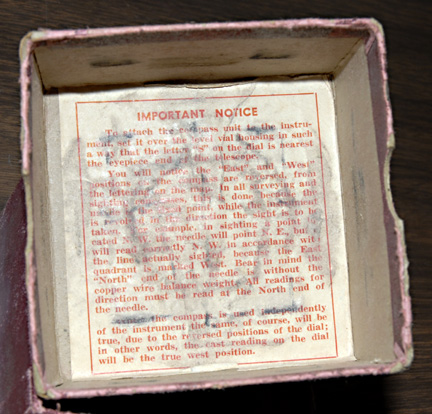 IMPORTANT NOTICE
To attach the compass unit to the instru-
ment, set it over the level vial housing in such
a way that the letter "S" on the dial is nearest
the eyepiece end of the telescope.
You will notice the "East" and "West"
positions of the compass are reversed, from
the lettering on the map. In all surveying and
compasses, this is done because the
the point, while the instrument
is the direction the sight is to be
taken. For example, in sighting a point lo-
cated N. W. the needle will point N. E., but
will read correctly N. W. in accordance with
the line actually sighted, because the East
quadrant is marked West. Bear in mind the
"North" end of the needle is without the
copper wire balance weight. All readings for
direction must be read at the North end of
the needle.
the compass is used independently
of the instrument the same, of course, will be
true, due to the reversed positions of the dial;
in other words, the east reading on the dial
will be the true west position.